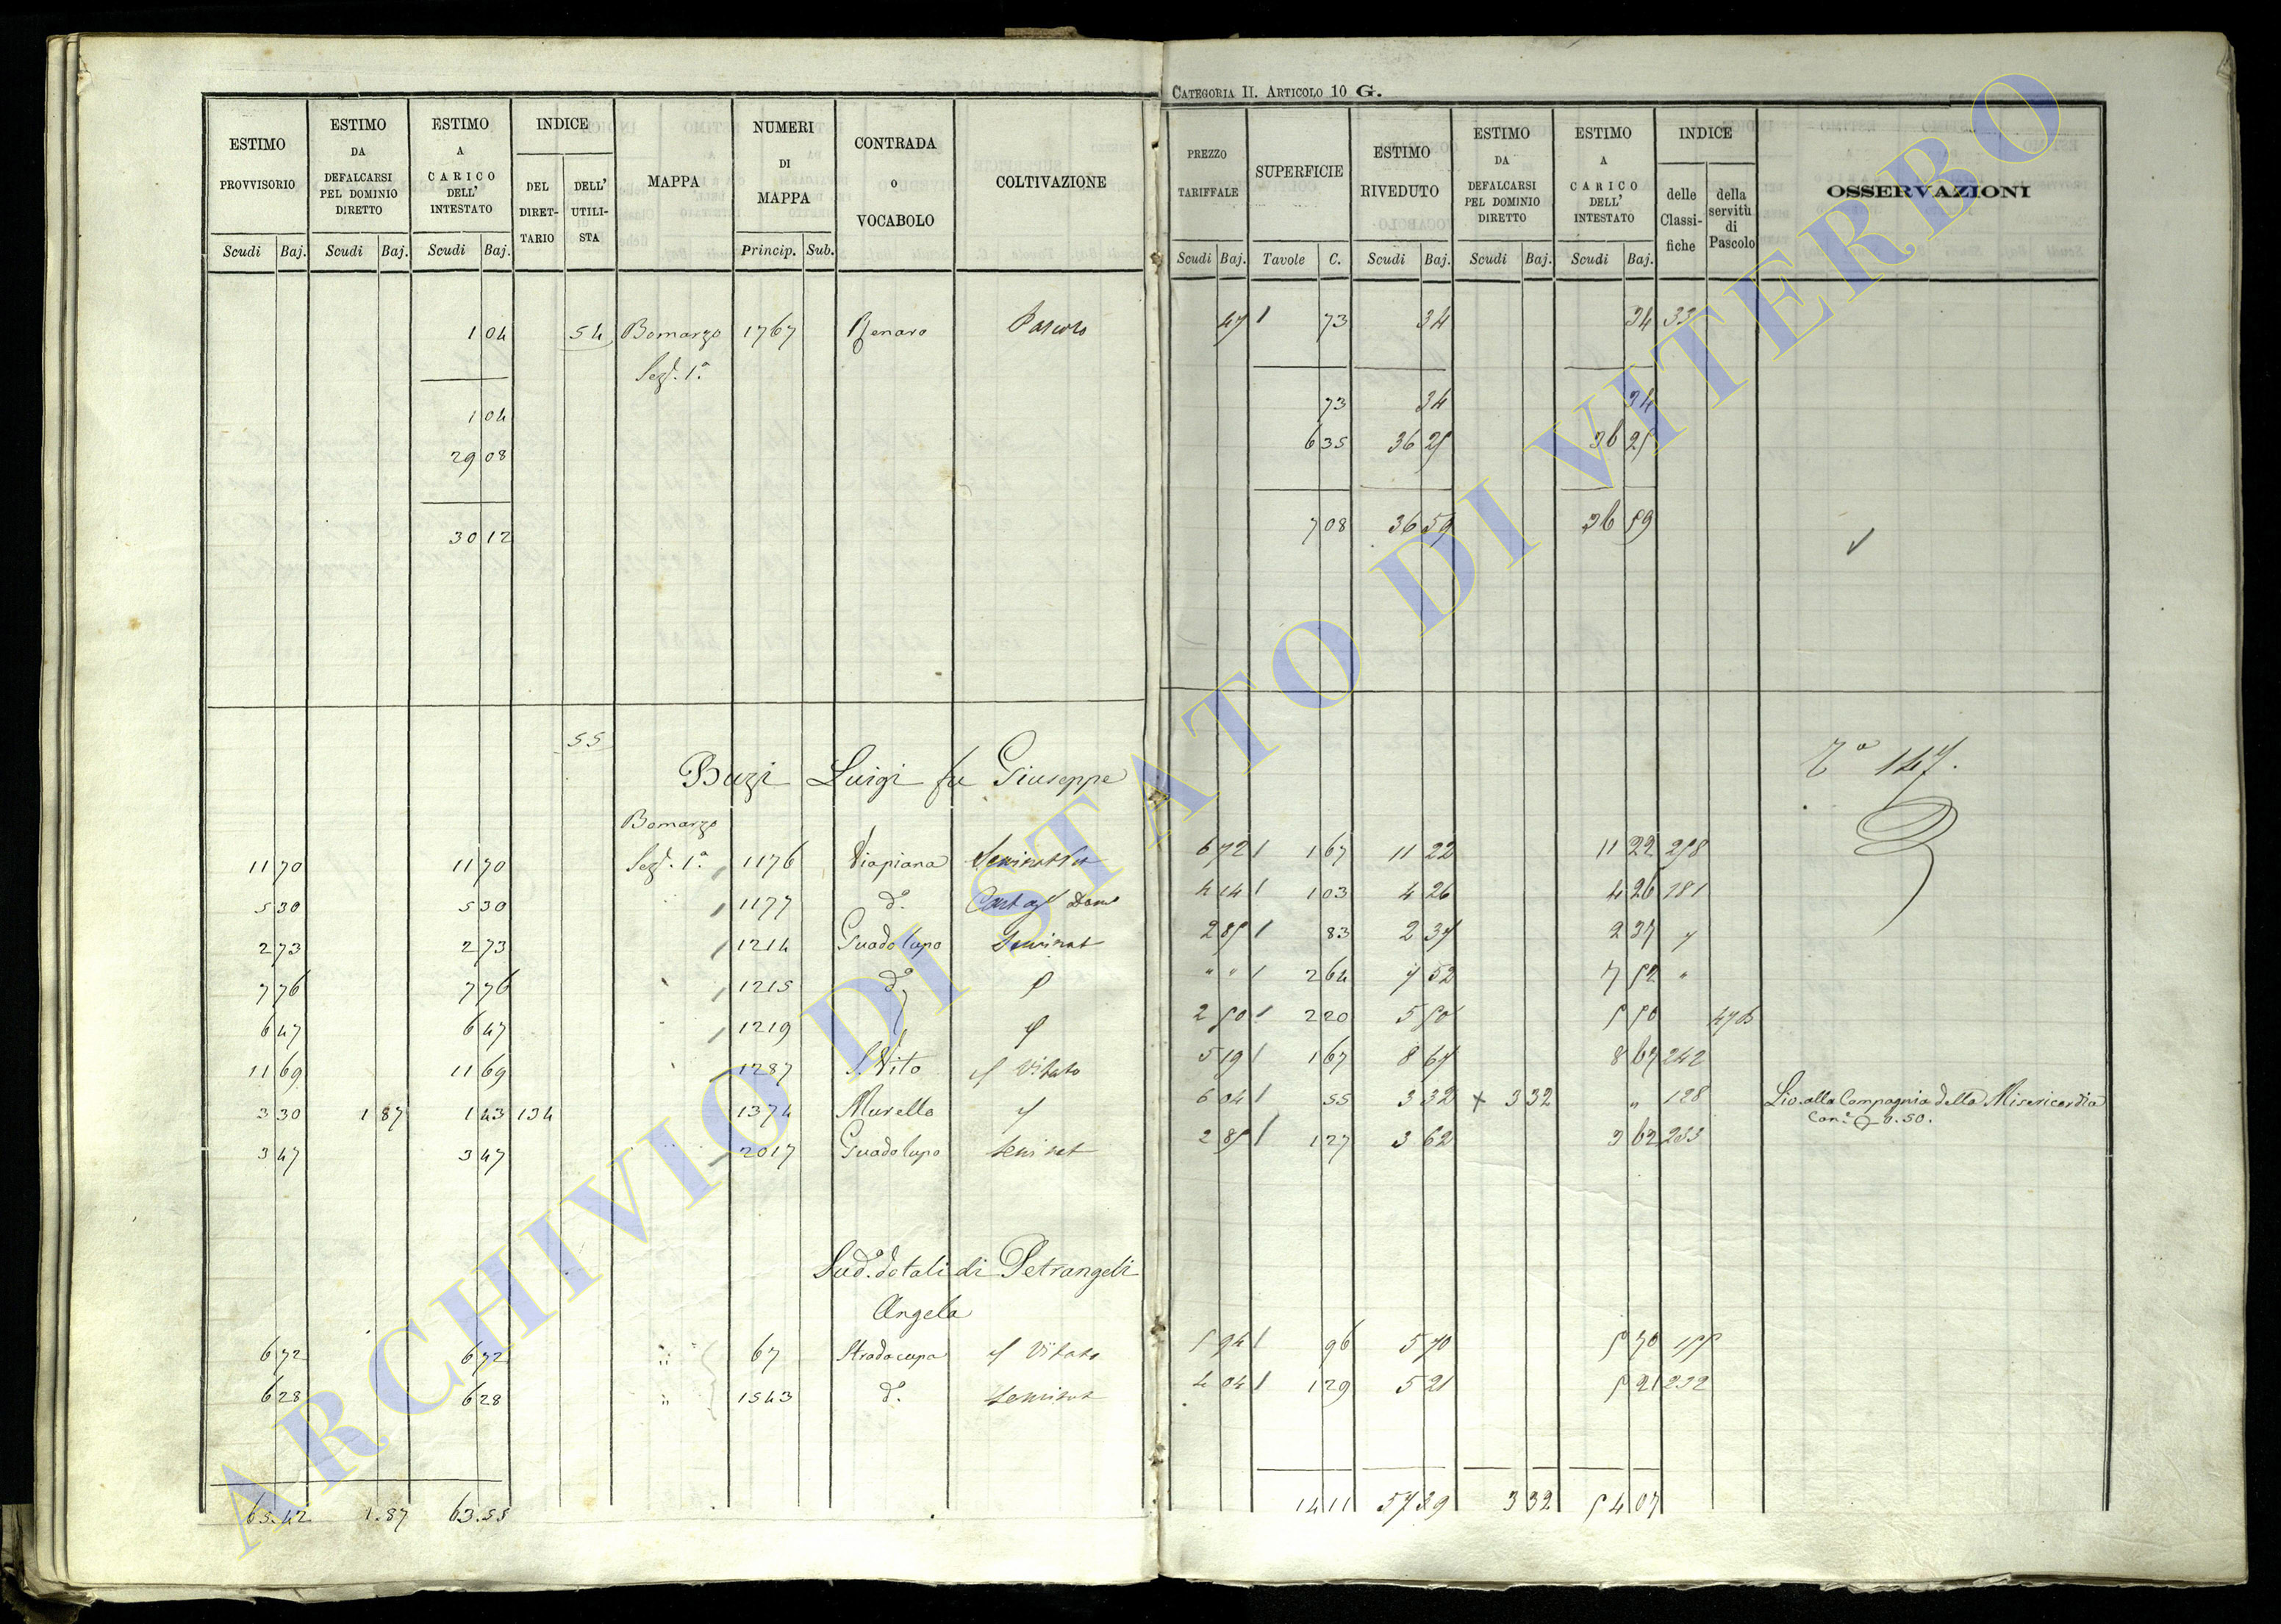 CATEGORIA II. ARTICOLO 10 G.
ESTIMO PROVVISORIO Scudi Baj.
ESTIMO DA DEFALCARSI PEL DOMINIO DIRETTO Scudi Baj.
ESTIMO A CARICO DELL' INTESTATO Scudi Baj.
INDICE DEL DIRETTARIO DELL' UTILISTA
MAPPA
NUMERI DI MAPPA Princip. Sub.
CONTRADA O VOCABOLO
COLTIVAZIONE
PREZZO TARIFFALE Scudi Baj.
SUPERFICIE Tavole C.
ESTIMO RIVEDUTO Scudi Baj.
ESTIMO DA DEFALCARSI PEL DOMINIO DIRETTO Scudi Baj.
ESTIMO A CARICO DELL' INTESTATO Scudi Baj.
INDICE delle Classifiche della servitù di Pascolo
OSSERVAZIONI
1 04 54 Bomarzo 1767 Pascolo 47 1 73 34 34 33
Sez. 1.a
1 04 73 34 34
29 08 6 35 36 25 36 25
30 12 7 08 36 59 36 59
55
Buzi Luigi fu Giuseppe 147.
Bomarzo
11 70 11 70 Sez. 1.a 1176 Viapiana 6 72 1 1 67 11 22 11 22 258
5 30 5 30 1177 d.o 4 14 1 1 03 4 26 4 26 181
2 73 2 73 1214 Guadolupo Seminat 2 85 1 83 2 37 2 37
7 76 7 76 1215 d.o " " 1 2 64 7 52 7 52 "
6 47 6 47 1219 2 50 1 2 20 5 50 5 50
11 69 11 69 1287 S. Vito Vitato 5 19 1 1 67 8 67 8 67 242
3 30 1 87 1 43 134 1374 Murello 6 04 1 55 3 32 + 3 32 " 128 Liv. alla Compagnia della Misericordia
0.50.
3 47 3 47 2017 Guadolupo Seminat 2 85 1 1 27 3 62 3 62 233
Sud.o dotali di Petrangeli
Angela
6 72 6 72 " 67 Stradacupa Vitato 5 94 1 96 5 70 5 70 155
6 28 6 28 " 1543 d.o Seminat 4 04 1 1 29 5 21 5 21 232
65.42 1.87 63.55 14 11 57 39 3 32 54 07
ARCHIVIO DI STATO DI VITERBO